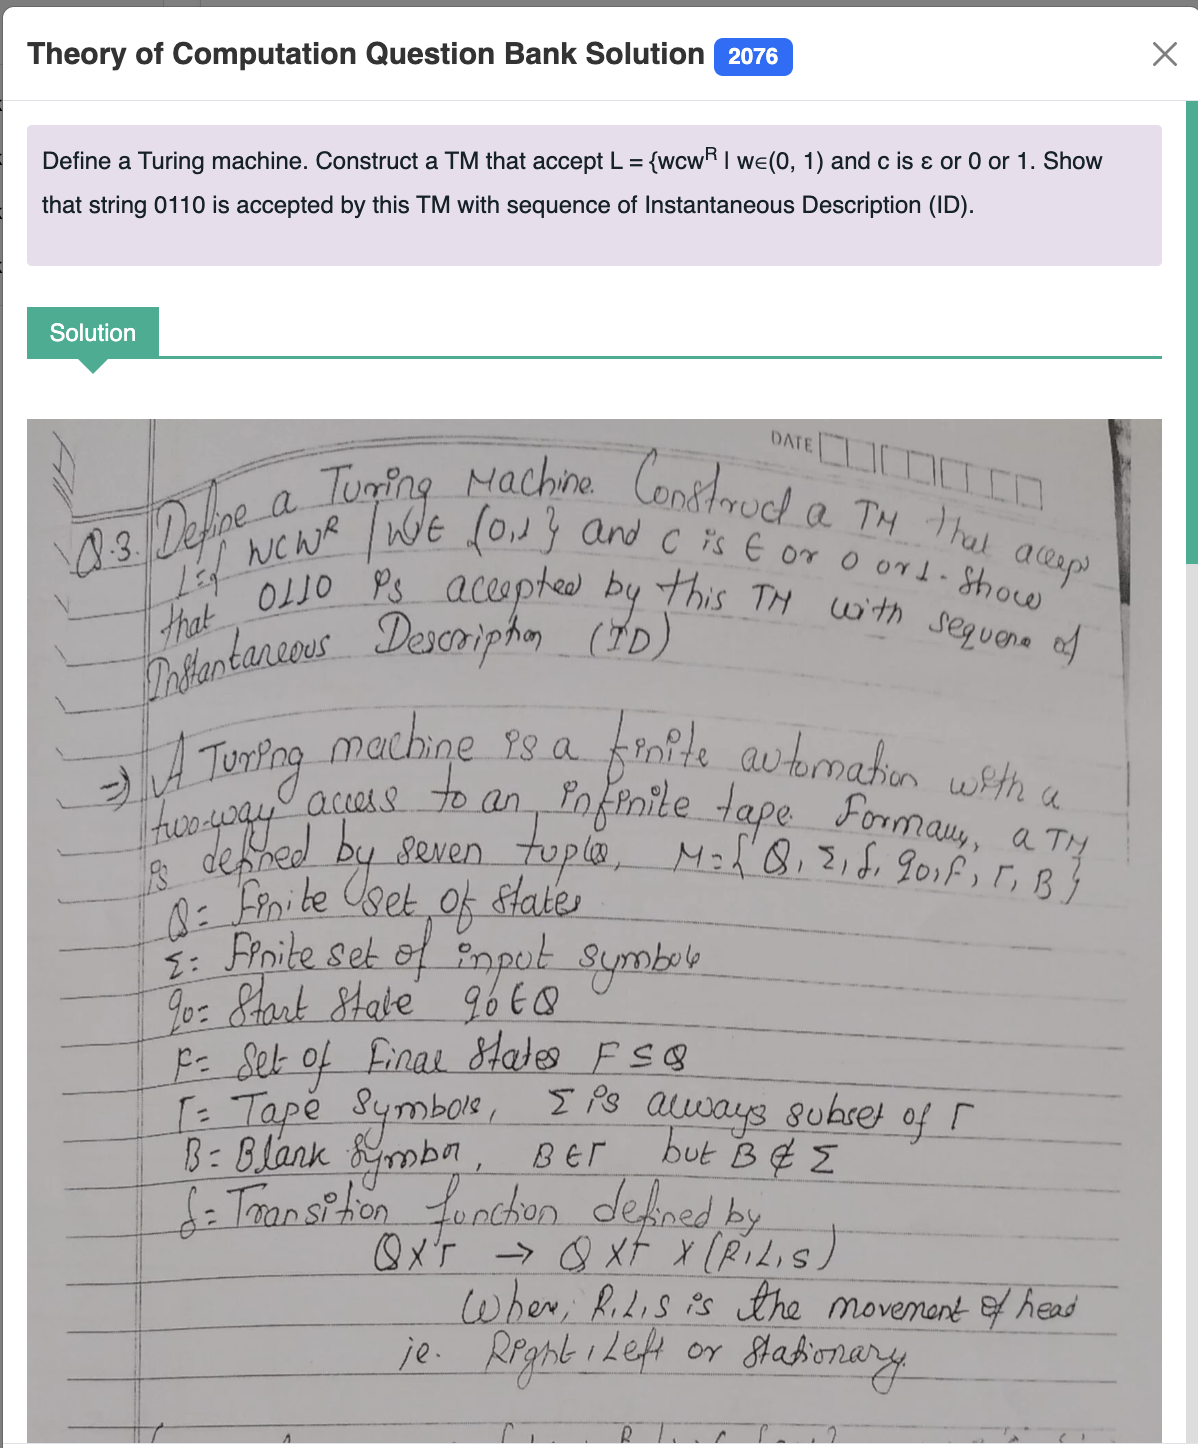 Theory of Computation Question Bank Solution 2076
Define a Turing machine. Construct a TM that accept L = {wcwᴿ | w∈(0, 1) and c is ε or 0 or 1. Show
that string 0110 is accepted by this TM with sequence of Instantaneous Description (ID).
Solution
DATE
Q.3. Define a Turing Machine. Construct a TM that accept
L={ wcwᴿ | w∈ {0,1} and c is ε or 0 or 1. Show
that 0110 is accepted by this TM with sequence of
Instantaneous Description (ID)
=) A Turing machine is a finite automation with a
two-way access to an infinite tape. Formally, a TM
is defined by seven tuples, M={Q, Σ, δ, q0, F, Γ, B}
Q= Finite set of states
Σ= Finite set of input symbols
q0= Start state q0 ∈ Q
F= Set of Final States F ⊆ Q
Γ= Tape Symbols, Σ is always subset of Γ
B= Blank Symbol, B∈Γ but B ∉ Σ
δ= Transition function defined by
Q×Γ → Q×Γ×(R,L,S)
Where, R,L,S is the movement of head
ie. Right, Left or Stationary.